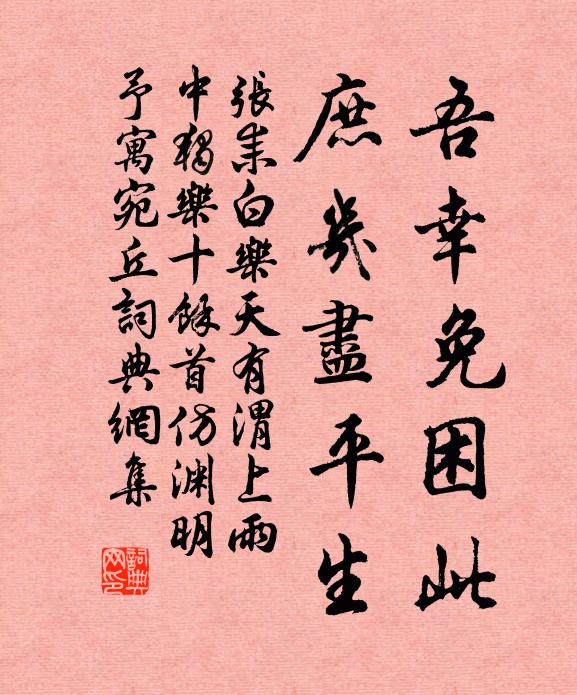 吾幸免困此
庶幾盡平生
張耒白樂天有渭上雨
中獨樂十餘首仿淵明
予寓宛丘詞典網集
詞典網印